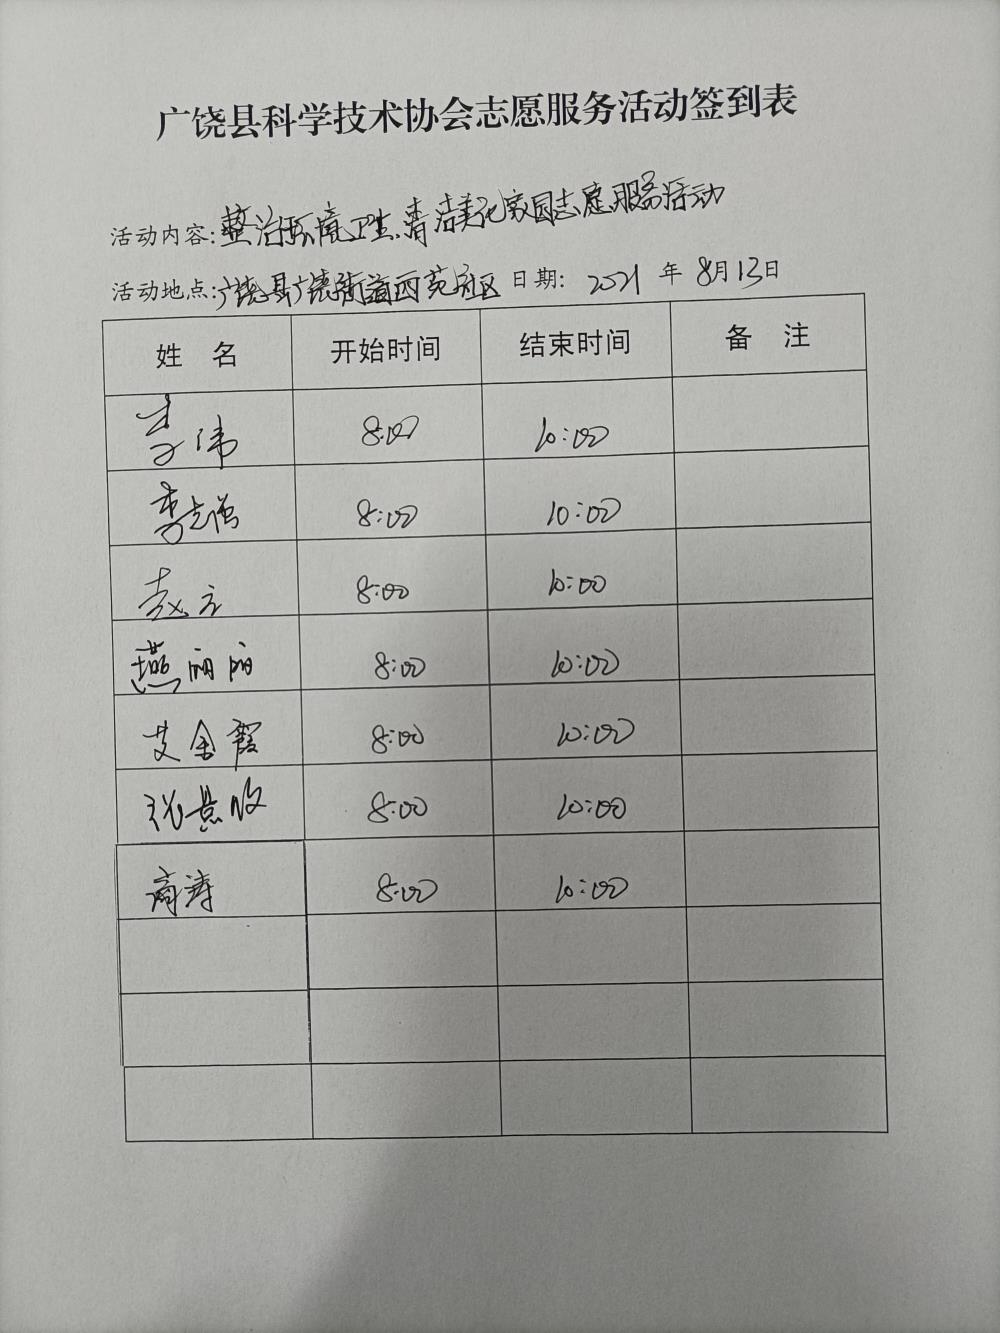 广饶县科学技术协会志愿服务活动签到表
活动内容:整治环境卫生.清洁美化家园志愿服务活动
活动地点:广饶县广饶街道西苑社区 日期: 2021 年 8月13日
姓 名 开始时间 结束时间 备 注
李伟 8:00 10:00
李志强 8:00 10:00
赵立 8:00 10:00
燕丽丽 8:00 10:00
艾金霞 8:00 10:00
张景收 8:00 10:00
商涛 8:00 10:00